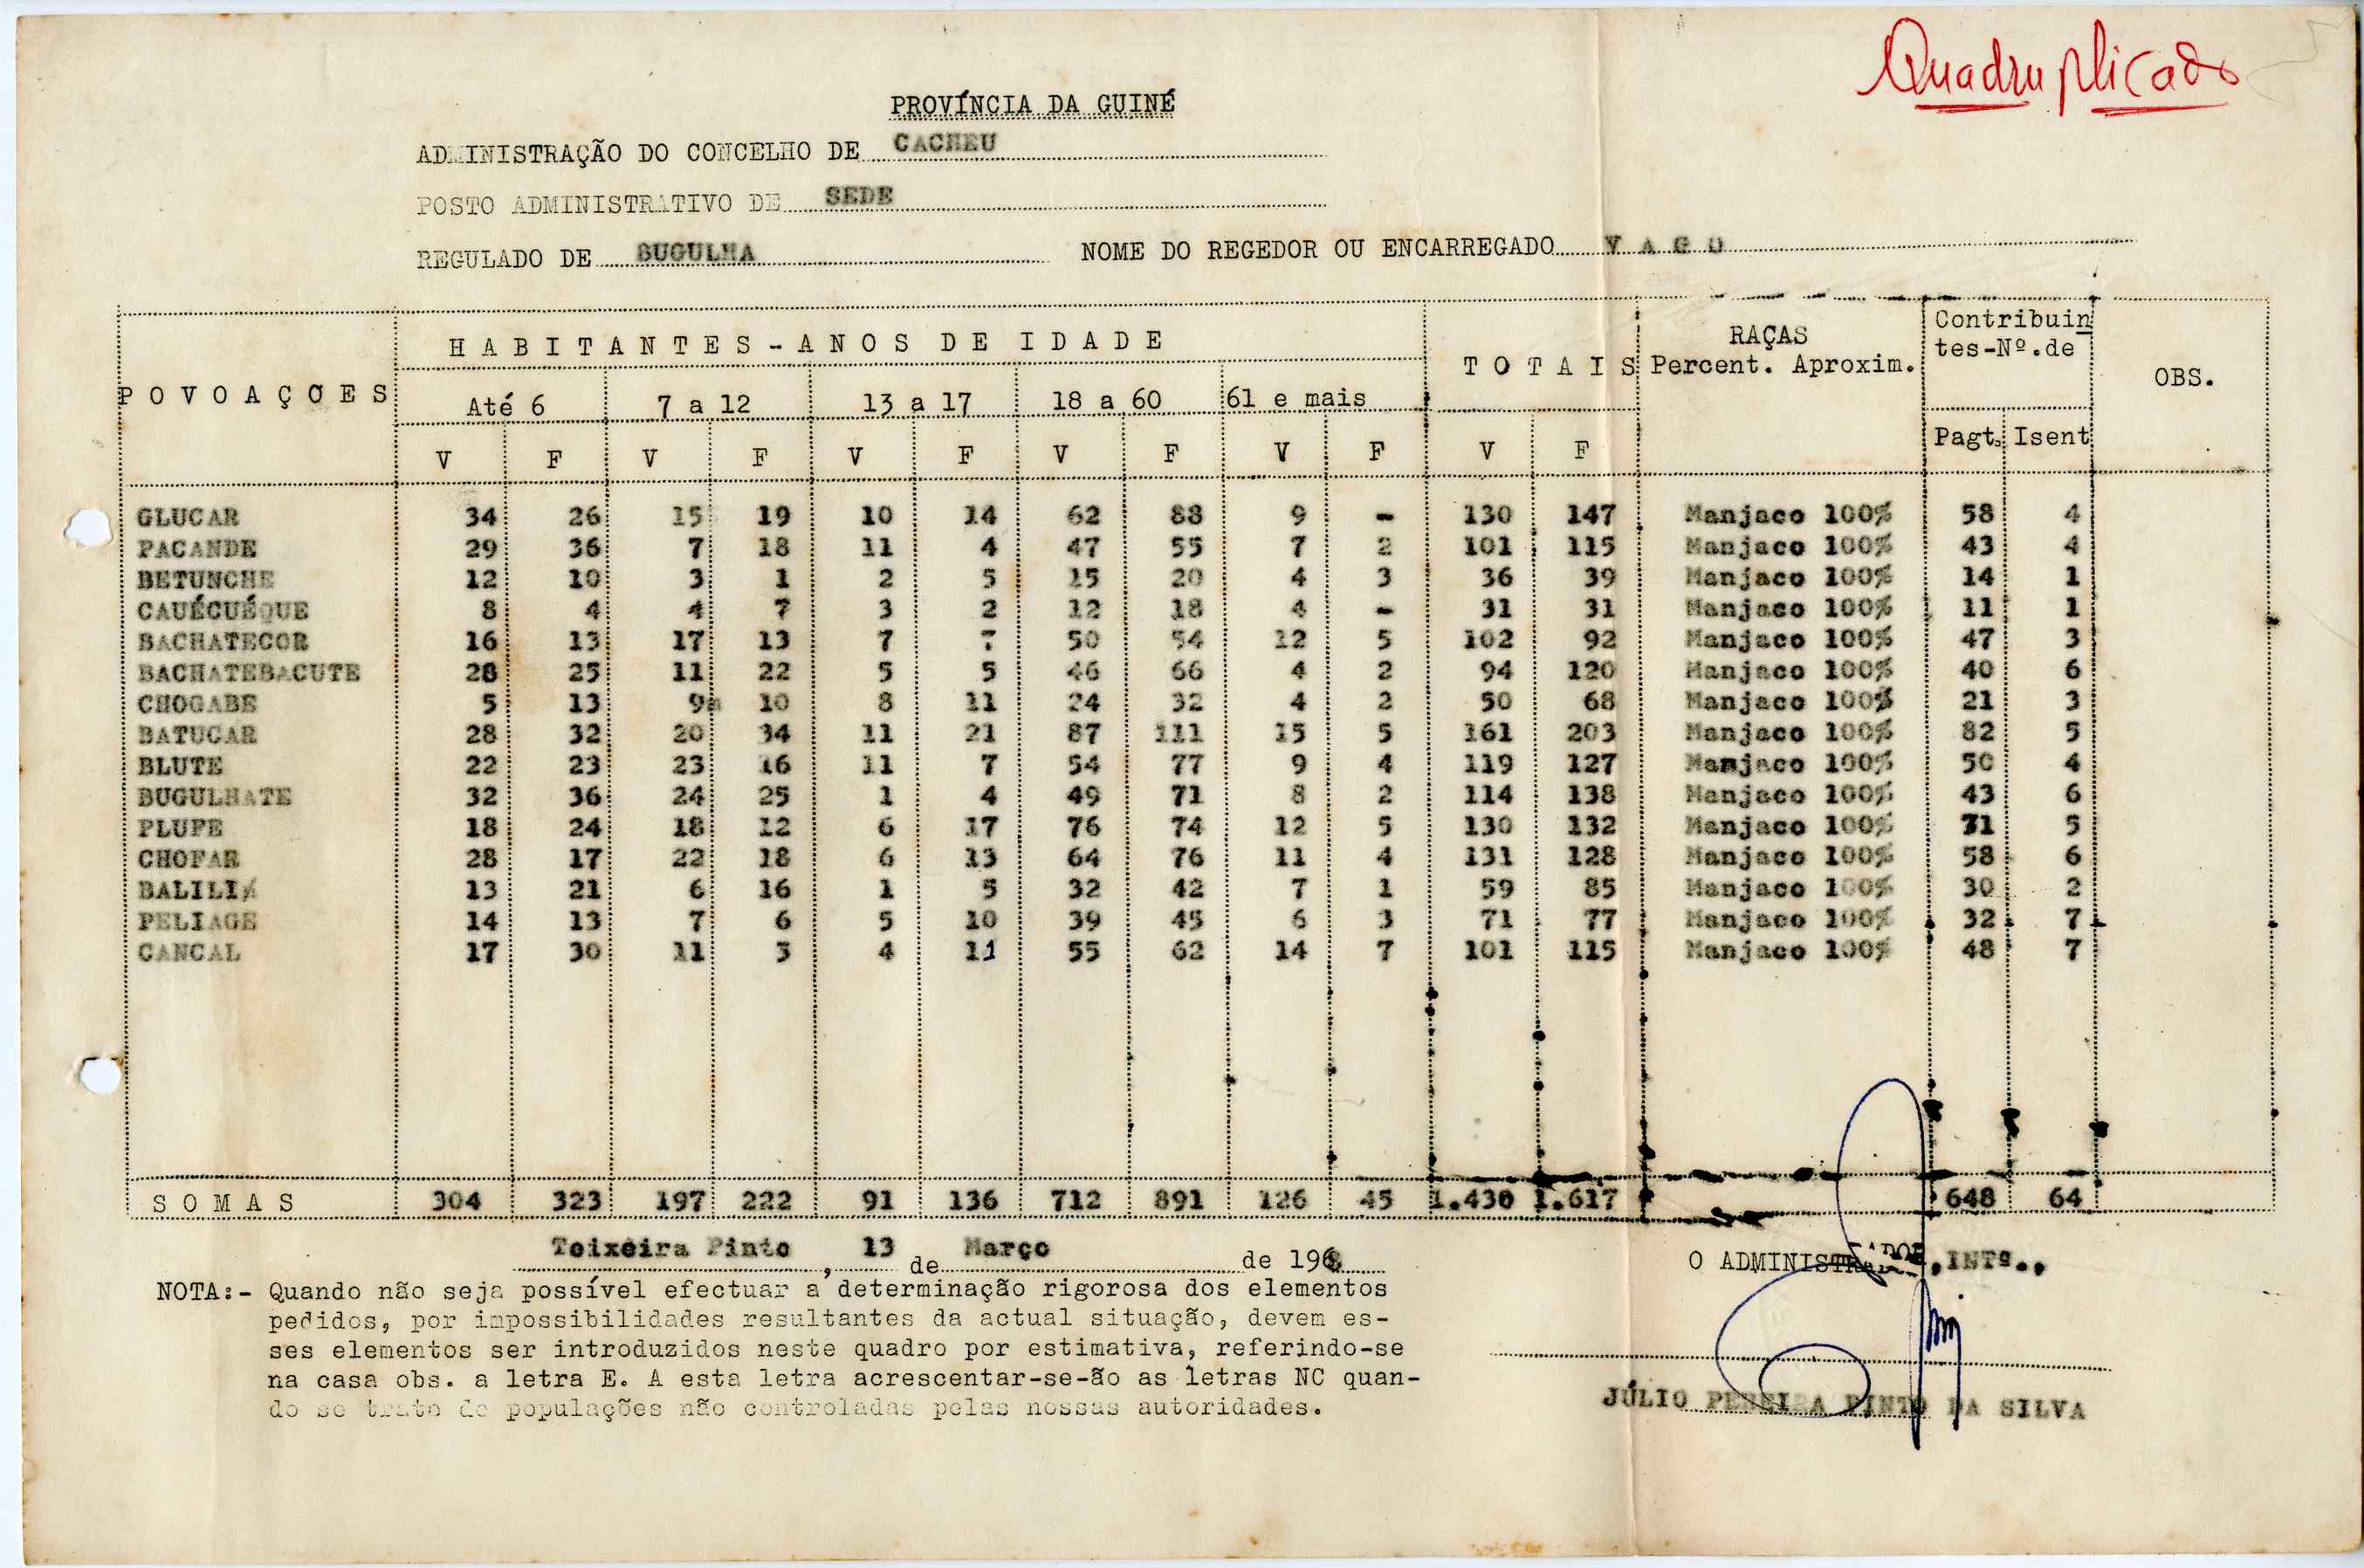 Quadruplicado
PROVÍNCIA DA GUINÉ
ADMINISTRAÇÃO DO CONCELHO DE CACHEU
POSTO ADMINISTRATIVO DE SEDE
REGULADO DE BUGULHA NOME DO REGEDOR OU ENCARREGADO V A G O
POVOAÇOES HABITANTES-ANOS DE IDADE TOTAIS RAÇAS Percent. Aproxim. Contribuin tes-Nº.de OBS.
Até 6 7 a 12 13 a 17 18 a 60 61 e mais
V F V F V F V F V F V F Pagt. Isent
GLUCAR 34 26 15 19 10 14 62 88 9 - 130 147 Manjaco 100% 58 4
PACANDE 29 36 7 18 11 4 47 55 7 2 101 115 Manjaco 100% 43 4
BETUNCHE 12 10 3 1 2 5 15 20 4 3 36 39 Manjaco 100% 14 1
CAUÉCUÉQUE 8 4 4 7 3 2 12 18 4 - 31 31 Manjaco 100% 11 1
BACHATECOR 16 13 17 13 7 7 50 54 12 5 102 92 Manjaco 100% 47 3
BACHATEBACUTE 28 25 11 22 5 5 46 66 4 2 94 120 Manjaco 100% 40 6
CHOGABE 5 13 9 10 8 11 24 32 4 2 50 68 Manjaco 100% 21 3
BATUCAR 28 32 20 34 11 21 87 111 15 5 161 203 Manjaco 100% 82 5
BLUTE 22 23 23 16 11 7 54 77 9 4 119 127 Manjaco 100% 50 4
BUGULHATE 32 36 24 25 1 4 49 71 8 2 114 138 Manjaco 100% 43 6
PLUFE 18 24 18 12 6 17 76 74 12 5 130 132 Manjaco 100% 71 5
CHOFAR 28 17 22 18 6 13 64 76 11 4 131 128 Manjaco 100% 58 6
BALILIÁ 13 21 6 16 1 5 32 42 7 1 59 85 Manjaco 100% 30 2
PELIAGE 14 13 7 6 5 10 39 45 6 3 71 77 Manjaco 100% 32 7
CANCAL 17 30 11 5 4 11 55 62 14 7 101 115 Manjaco 100% 48 7
SOMAS 304 323 197 222 91 136 712 891 126 45 1.430 1.617 648 64
Teixeira Pinto, 13 de Março de 196
O ADMINISTRADOR, INTº.,
NOTA:- Quando não seja possível efectuar a determinação rigorosa dos elementos
pedidos, por impossibilidades resultantes da actual situação, devem es-
ses elementos ser introduzidos neste quadro por estimativa, referindo-se
na casa obs. a letra E. A esta letra acrescentar-se-ão as letras NC quan-
do se trate de populações não controladas pelas nossas autoridades.
JÚLIO PEREIRA PINTO DA SILVA